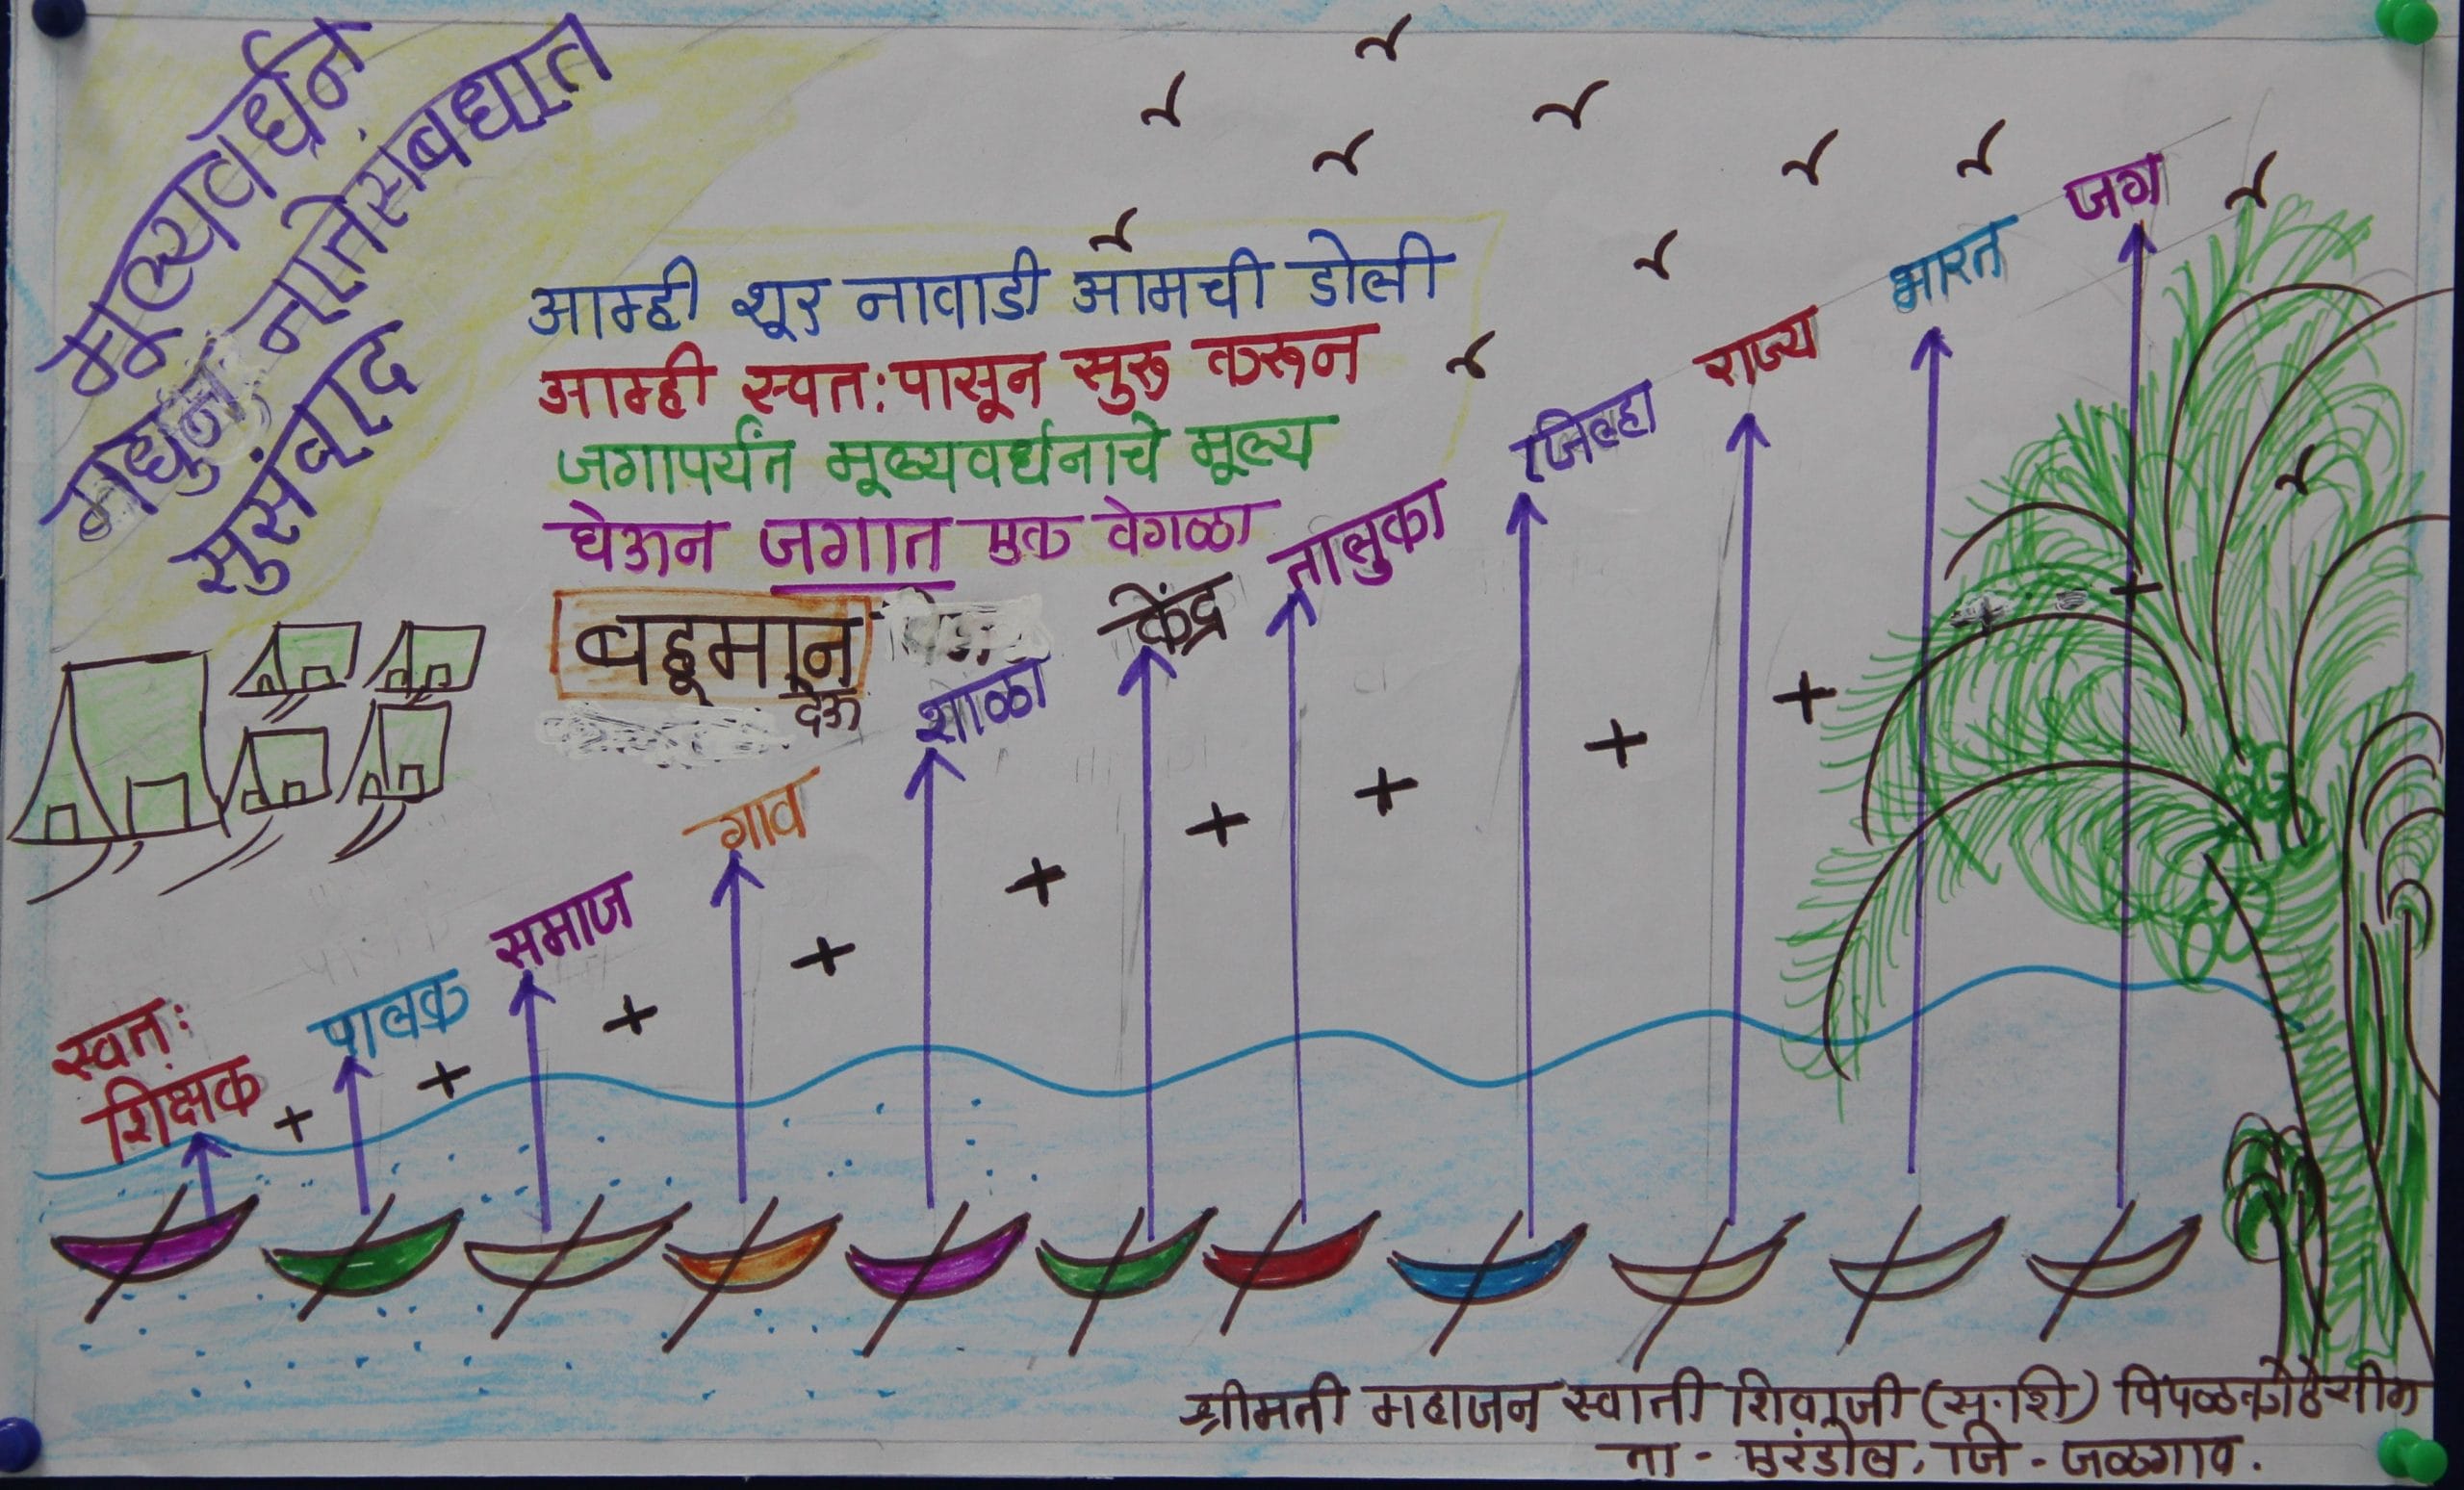 मूल्यवर्धन
मधुन नातेसंबधात
सुसंवाद
आम्ही शूर नावाडी आमची डोली
आम्ही स्वत:पासून सुरु करून
जगापर्यंत मूल्यवर्धनाचे मूल्य
घेऊन जगात एक वेगळा
बहूमान
देऊ
स्वत:
शिक्षक
+
पालक
+
समाज
+
गाव
+
शाळा
+
केंद्र
+
तालुका
+
जिल्हा
+
राज्य
+
भारत
+
जग
श्रीमती महाजन स्वाती शिवाजी (सू.शि)
ता - एरंडोल, जि - जळगाव.